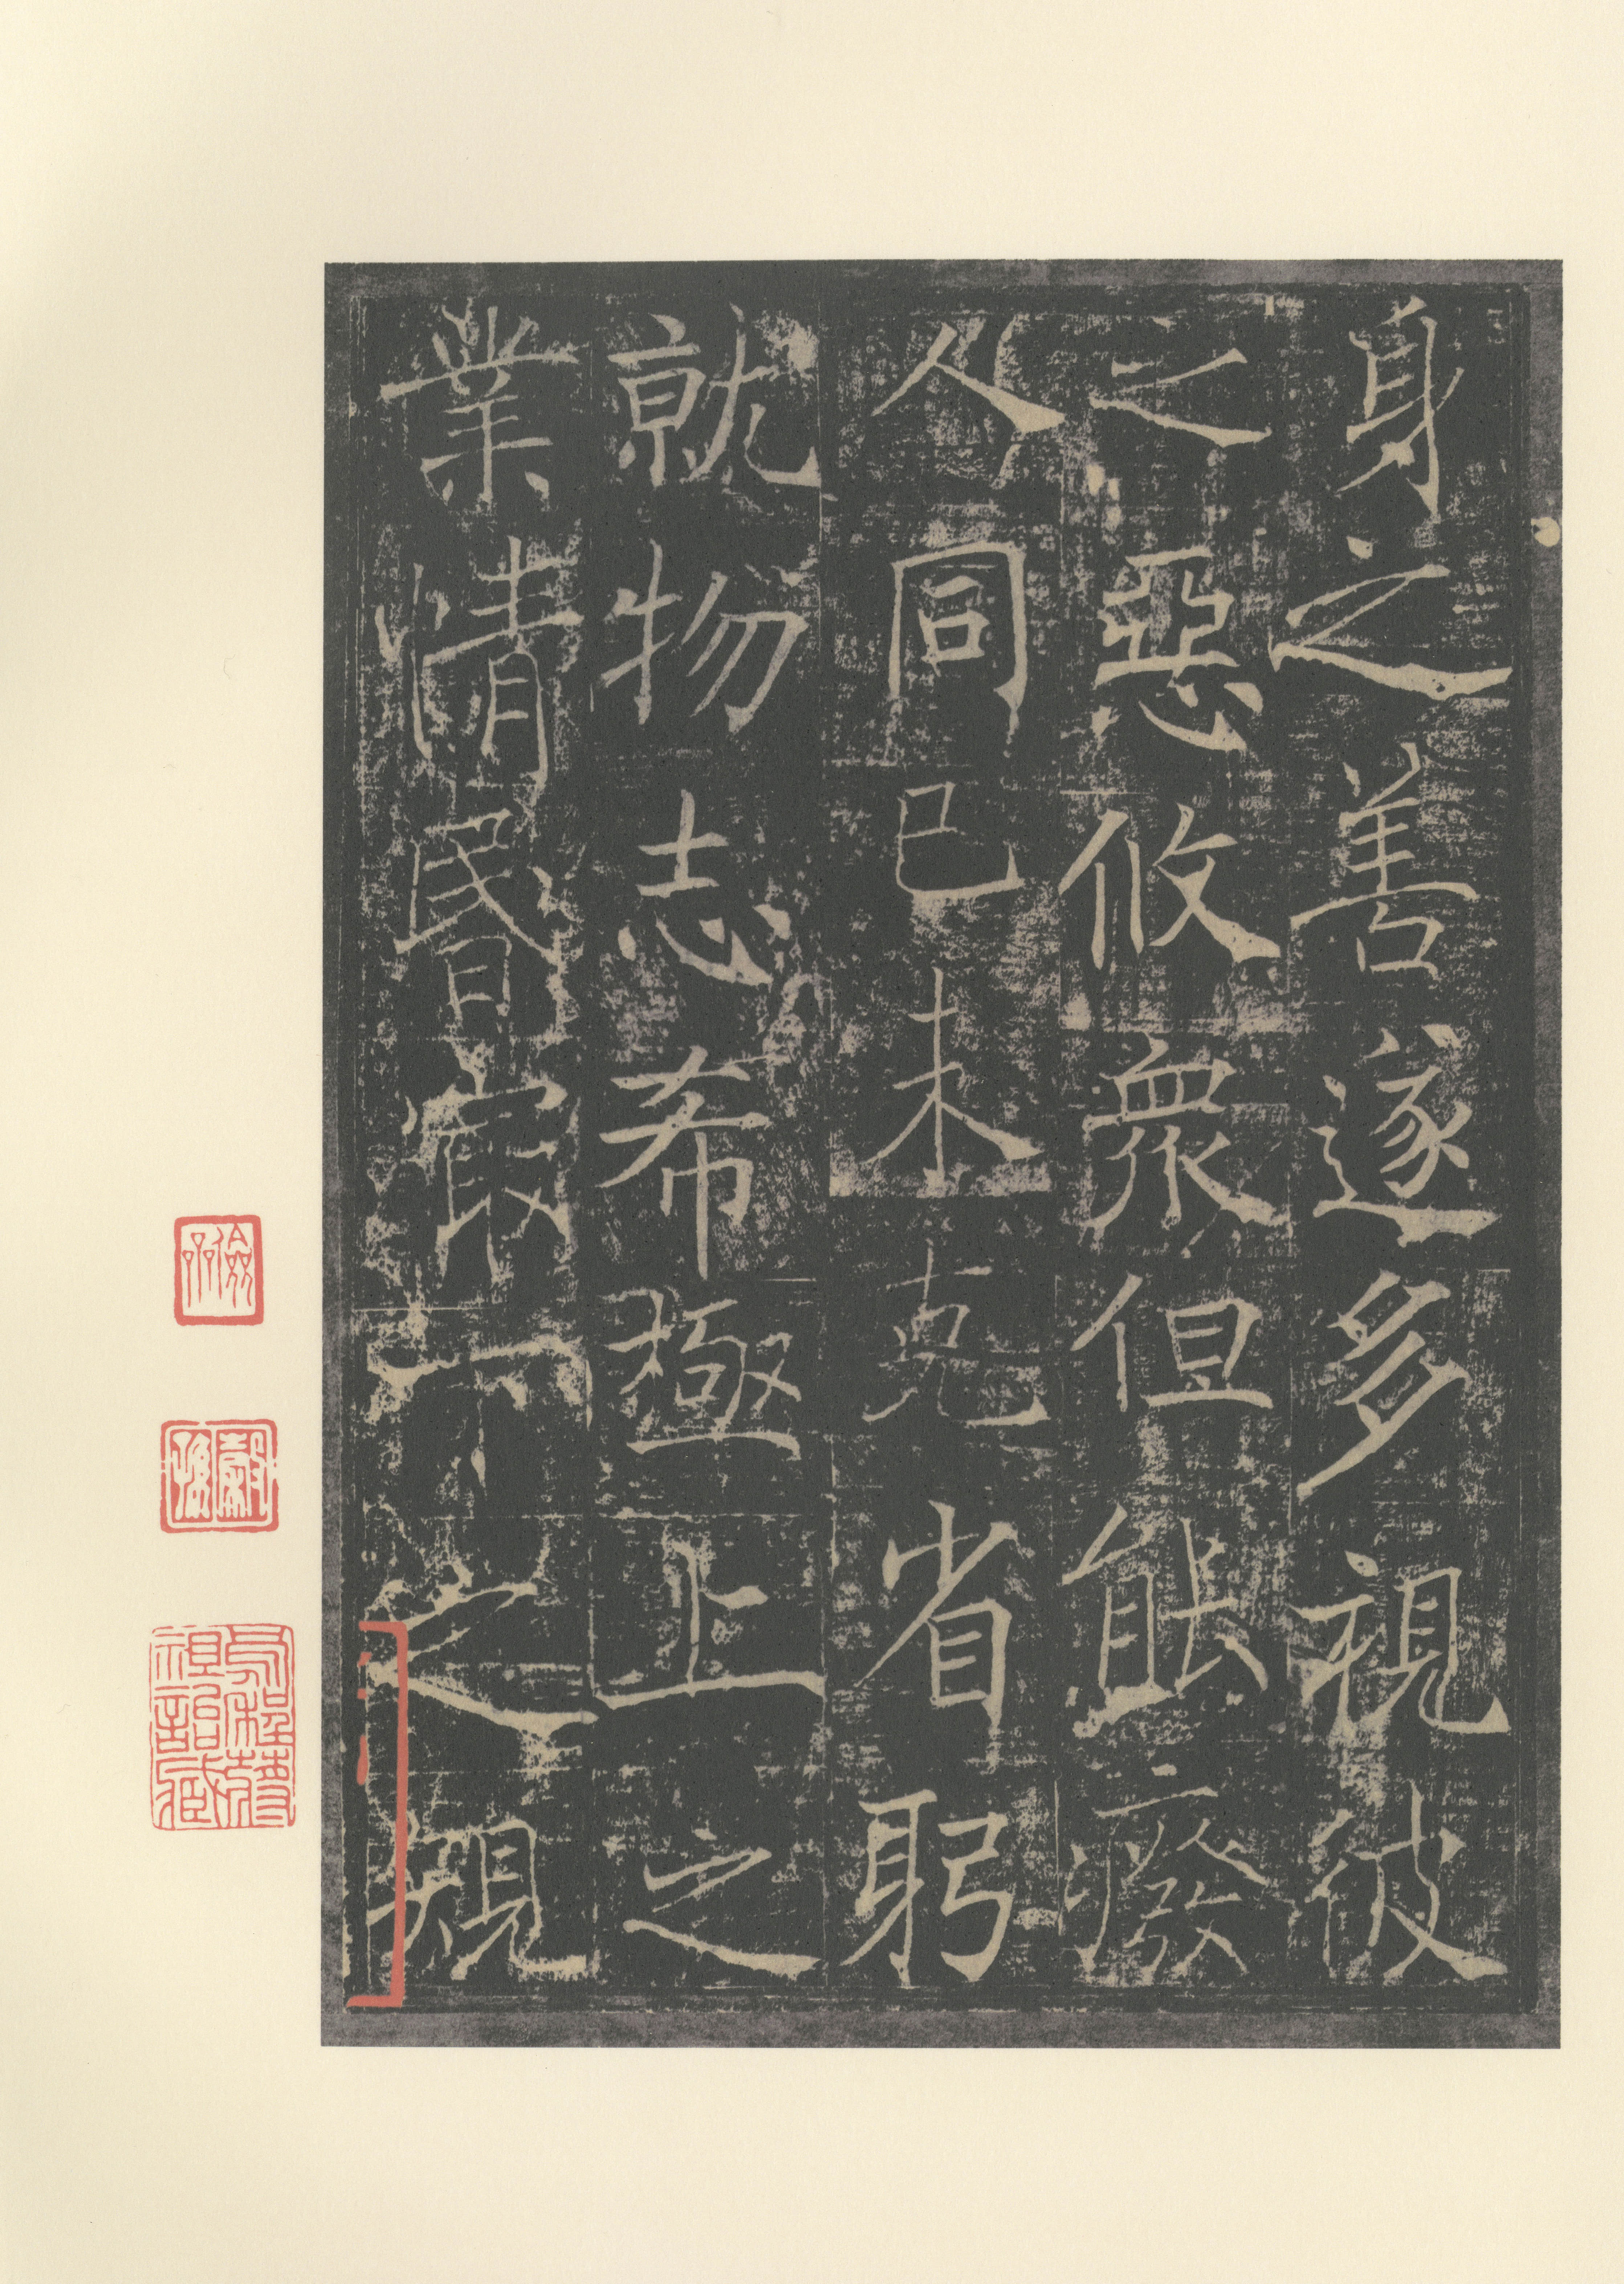 身之善遂多視彼
之惡攸衆但能廢
人同己未克省躬
就物志希極上之
業情昬㝡下之規